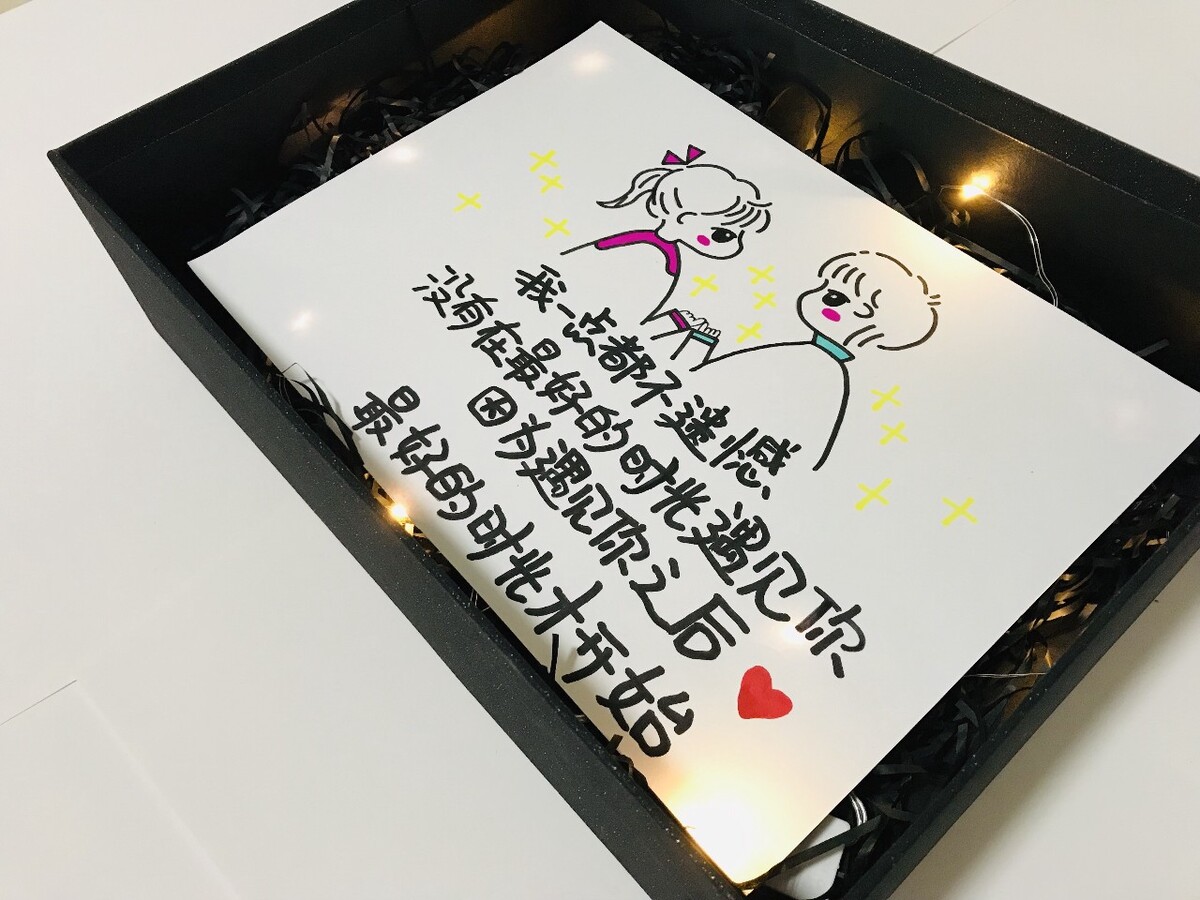 我一点都不遗憾
没有在最好的时光遇见你
因为遇见你之后
最好的时光才开始